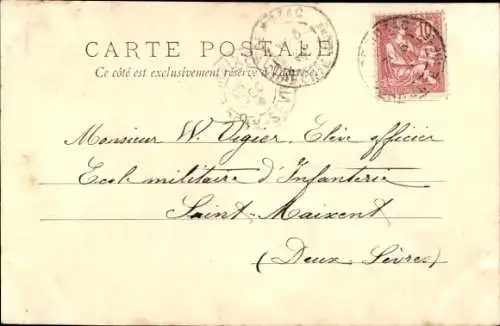 CARTE POSTALE
Ce côté est exclusivement réservé à l'adresse
10
Monsieur W. Vigier, Elève officier
Ecole militaire d'Infanterie
Saint-Maixent
(Deux Sèvres)